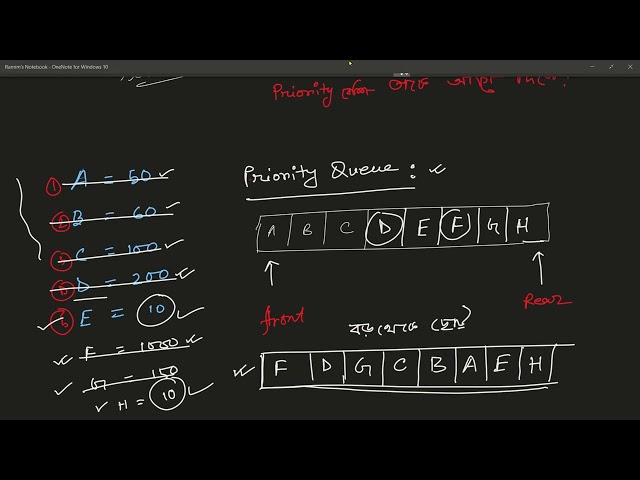 Ramim's Notebook - OneNote for Windows 10
Priority তাকে আগে
① A = 50 ✓
② B = 60 ✓
④ C = 100 ✓
⑤ D = 200 ✓
✓ E = 10 ✓
✓ F = 1000 ✓
✓ G = 150
✓ H = 10 ✓
Priority Queue : ✓
A B C D E F G H
front
Rear
বড় থেকে ছোট
✓ F D G C B A E H